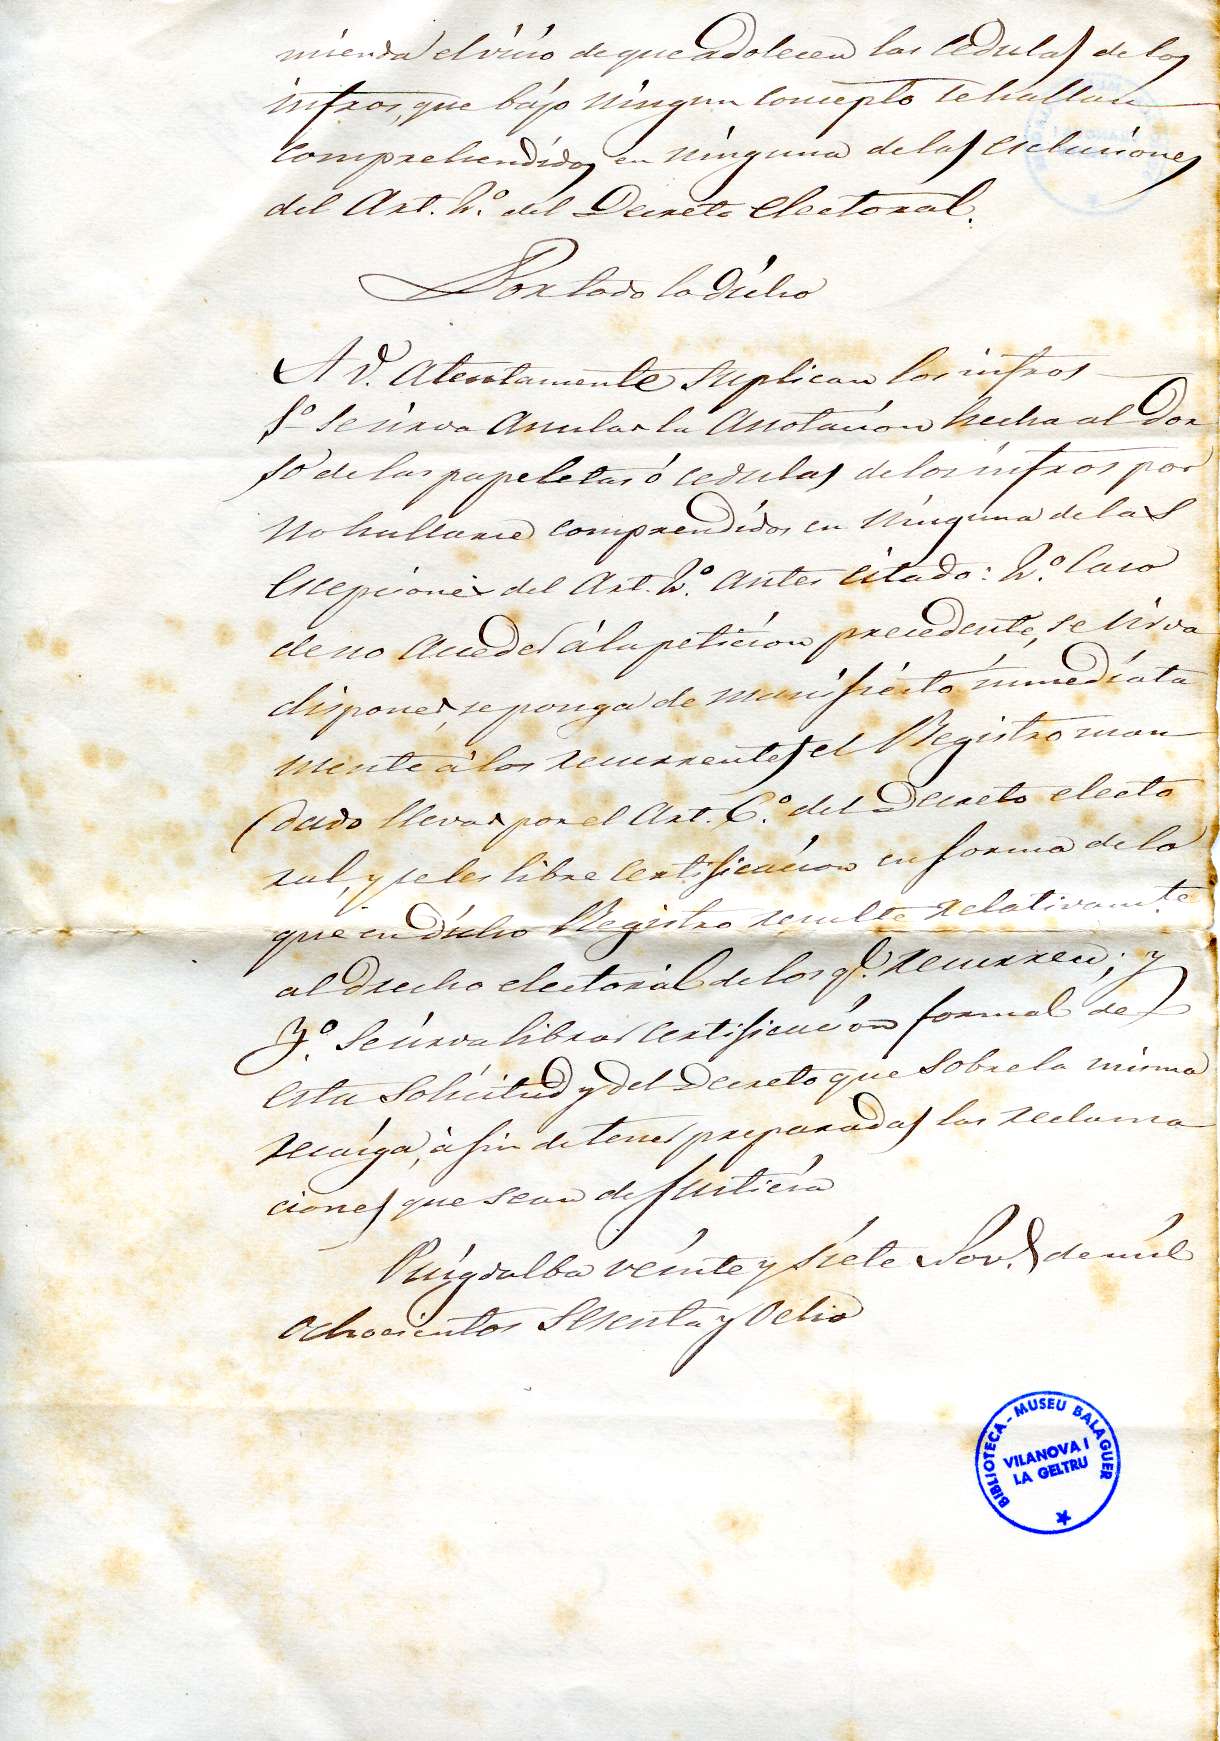 mienda el vicio de que adolecen las cedulas de los
infros, que bajo ningun concepto se hallan
comprehendidos en ninguna de las esclusiones
del Art. 2.º del Decreto electoral.
Por todo lo dicho
A V. Atentamente suplican los infros
1º se sirva Anular la Anotacion hecha al Dor
so de las papeletas ó cedulas de los infros por
no hallarse comprendidos en ninguna de las
Excepciones del Art. 2.º Antes citado: 2.º Caso
de no acceder á la peticion precedente, se sirva
disponer, se ponga de manifiesto inmediata
mente á los recurrentes el Registro man
dado llevar por el Art. 6.º del Decreto electo
ral, y se les libre certificacion en forma de lo
que en dicho Registro resulte relativam.te
al drecho electoral de los q.e recurren; y
3.º Se sirva librar certificacion formal de
esta solicitud y del Decreto que sobre la misma
recaiga, á fin de tener preparadas las reclama
ciones que sean de Justicia
Puigdalba veinte y siete Nov.e de mil
ochocientos sesenta y ocho
BIBLIOTECA - MUSEU BALAGUER
VILANOVA I
LA GELTRU